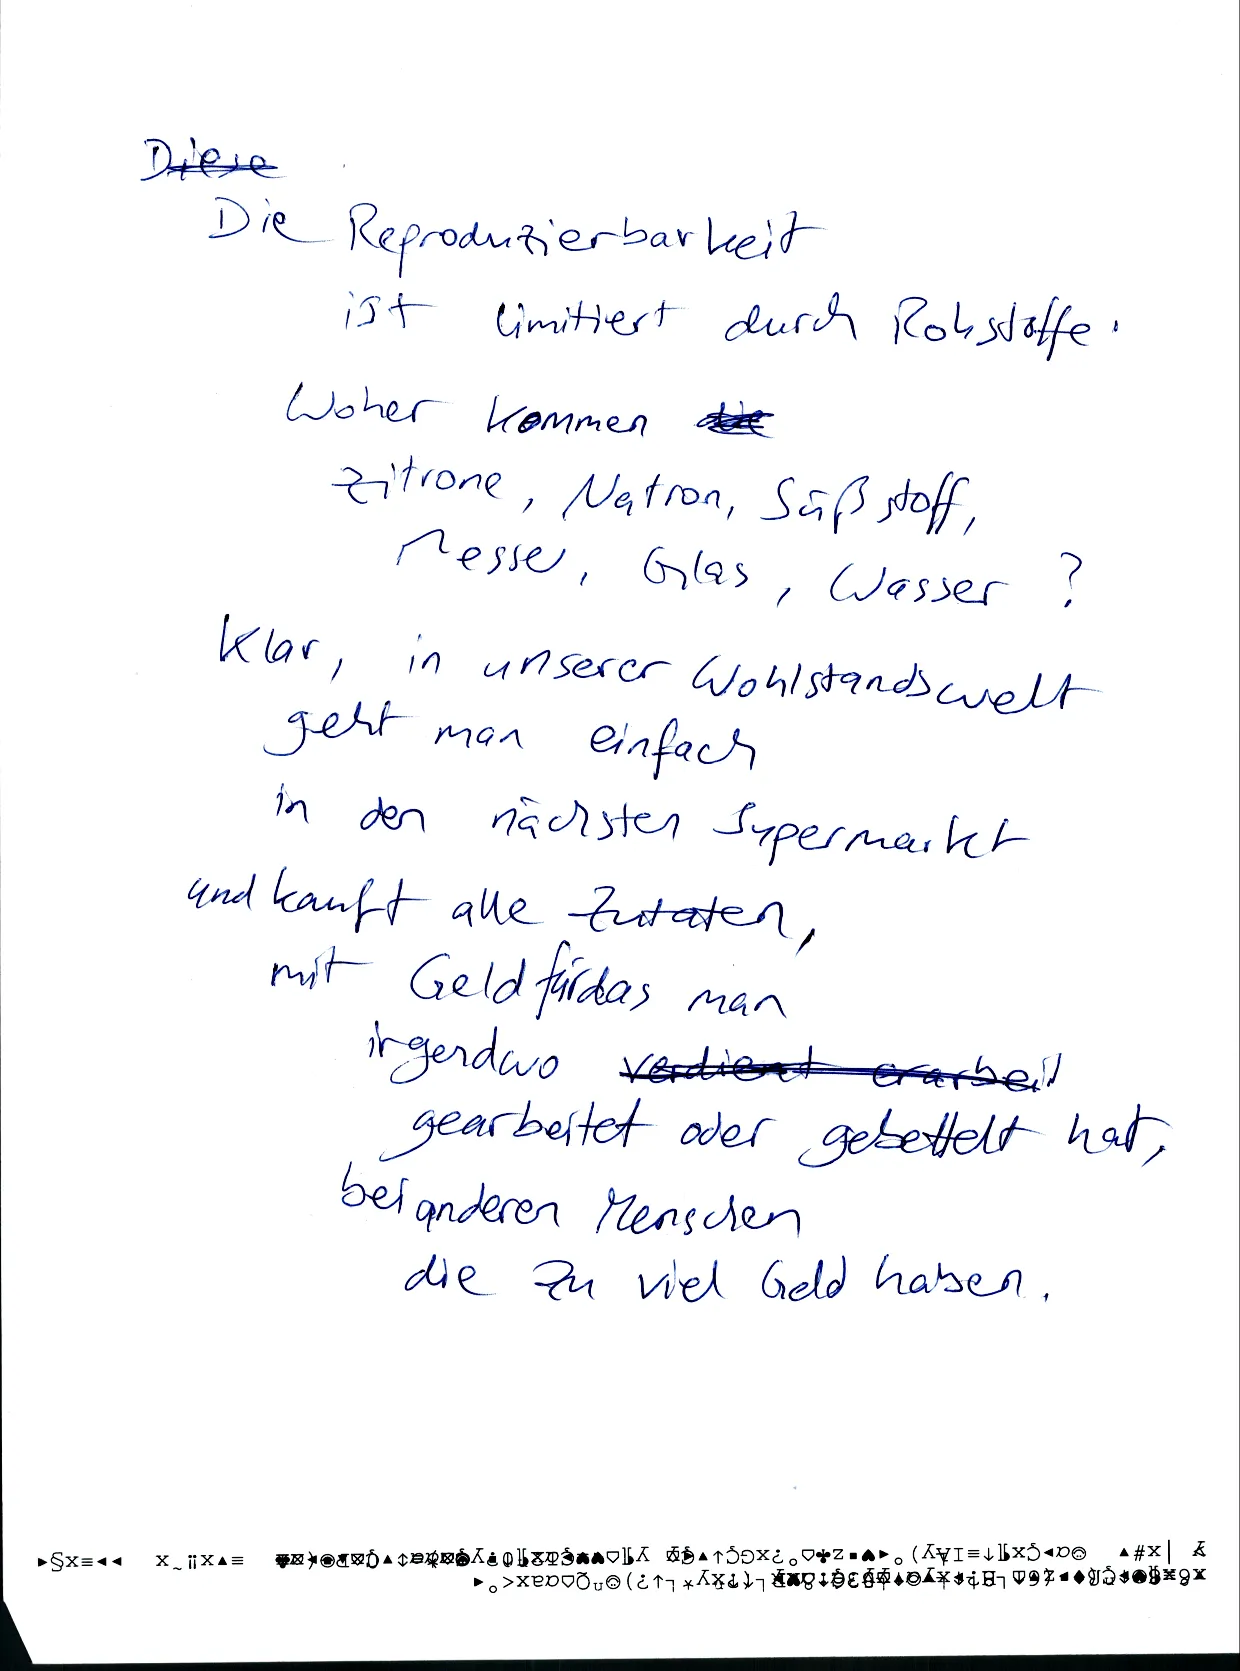 Diese
Die Reproduzierbarkeit
ist limitiert durch Rohstoffe.
Woher kommen die
Zitrone, Natron, Süßstoff,
Messer, Glas, Wasser ?
Klar, in unserer Wohlstandswelt
geht man einfach
in den nächsten Supermarkt
und kauft alle Zutaten,
mit Geld für das man
irgendwo verdient erarbeit
gearbeitet oder gebettelt hat,
bei anderen Menschen
die zu viel Geld haben.